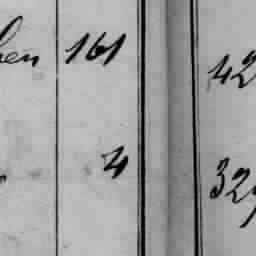 hen 161 42
4 32